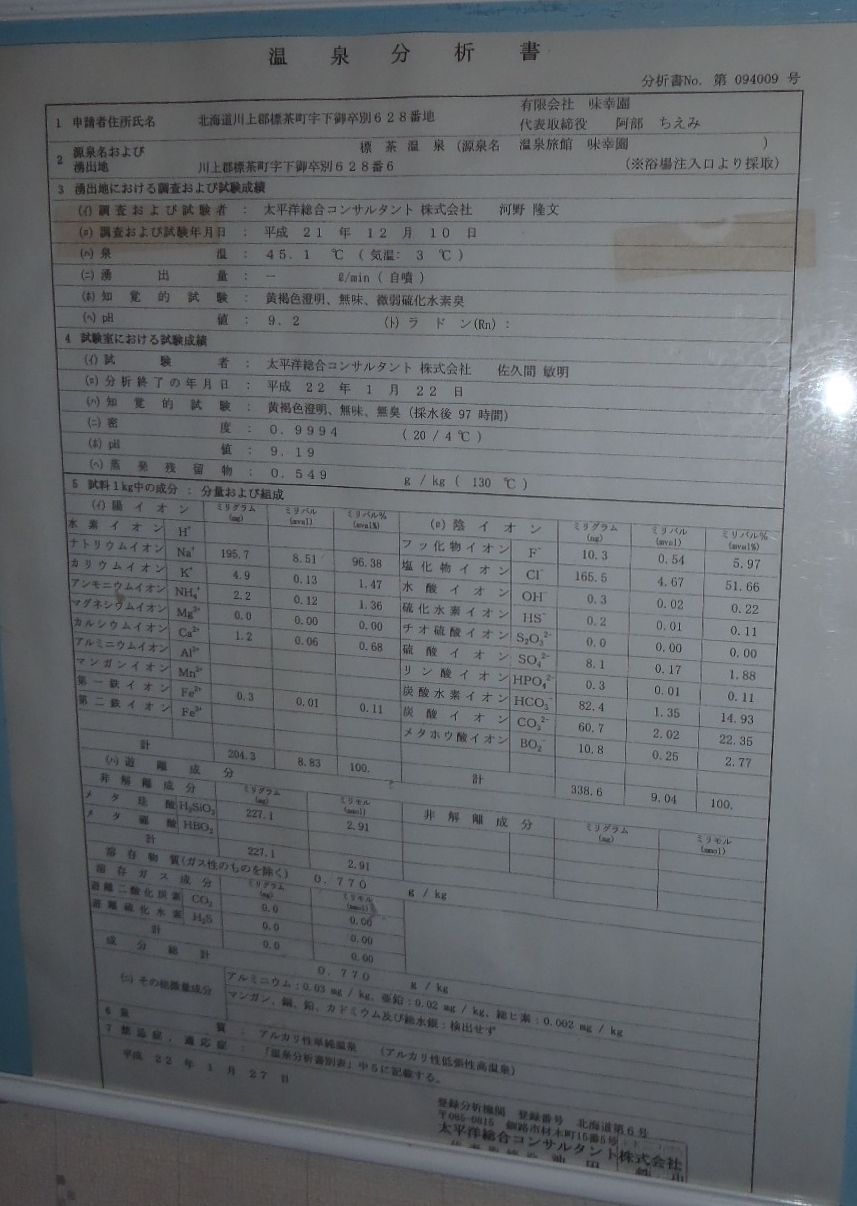 温泉分析書
分析書No. 第 094009 号
1 申請者住所氏名 北海道川上郡標茶町字下御卒別628番地 有限会社 味幸園
代表取締役 阿部 ちえみ
2 源泉名および湧出地 標茶温泉 (源泉名 温泉旅館 味幸園 )
川上郡標茶町字下御卒別628番6 (※浴場注入口より採取)
3 湧出地における調査および試験成績
(ｲ) 調査および試験者 : 太平洋総合コンサルタント 株式会社 河野 隆文
(ﾛ) 調査および試験年月日 : 平成 21 年 12 月 10 日
(ﾊ) 泉温 : 45.1 ℃ ( 気温: 3 ℃ )
(ﾆ) 湧出量 : ― ℓ/min ( 自噴 )
(ﾎ) 知覚的試験 : 黄褐色澄明、無味、微弱硫化水素臭
(ﾍ) pH値 : 9.2 (ﾄ) ラドン(Rn) :
4 試験室における試験成績
(ｲ) 試験者 : 太平洋総合コンサルタント 株式会社 佐久間 敏明
(ﾛ) 分析終了の年月日 : 平成 22 年 1 月 22 日
(ﾊ) 知覚的試験 : 黄褐色澄明、無味、無臭 (採水後 97 時間)
(ﾆ) 密度 : 0.9994 ( 20 / 4 ℃ )
(ﾎ) pH値 : 9.19
(ﾍ) 蒸発残留物 : 0.549 g / kg ( 130 ℃ )
5 試料1kg中の成分 : 分量および組成
(ｲ) 陽イオン ミリグラム(mg) ミリバル(mval) ミリバル%(mval%)
水素イオン H⁺
ナトリウムイオン Na⁺ 195.7 8.51 96.38
カリウムイオン K⁺ 4.9 0.13 1.47
アンモニウムイオン NH₄⁺ 2.2 0.12 1.36
マグネシウムイオン Mg²⁺ 0.0 0.00 0.00
カルシウムイオン Ca²⁺ 1.2 0.06 0.68
アルミニウムイオン Al³⁺
マンガンイオン Mn²⁺
第一鉄イオン Fe²⁺ 0.3 0.01 0.11
第二鉄イオン Fe³⁺
計 204.3 8.83 100.
(ﾛ) 陰イオン ミリグラム(mg) ミリバル(mval) ミリバル%(mval%)
フッ化物イオン F⁻ 10.3 0.54 5.97
塩化物イオン Cl⁻ 165.5 4.67 51.66
水酸イオン OH⁻ 0.3 0.02 0.22
硫化水素イオン HS⁻ 0.2 0.01 0.11
チオ硫酸イオン S₂O₃²⁻ 0.0 0.00 0.00
硫酸イオン SO₄²⁻ 8.1 0.17 1.88
リン酸イオン HPO₄²⁻ 0.3 0.01 0.11
炭酸水素イオン HCO₃⁻ 82.4 1.35 14.93
炭酸イオン CO₃²⁻ 60.7 2.02 22.35
メタホウ酸イオン BO₂⁻ 10.8 0.25 2.77
計 338.6 9.04 100.
(ﾊ) 遊離成分
非解離成分 ミリグラム(mg) ミリモル(mmol)
メタ珪酸 H₂SiO₃ 227.1 2.91
メタ硼酸 HBO₂
計 227.1 2.91
非解離成分 ミリグラム(mg) ミリモル(mmol)
溶存物質(ガス性のものを除く) 0.770 g / kg
溶存ガス成分 ミリグラム(mg) ミリモル(mmol)
遊離二酸化炭素 CO₂ 0.0 0.00
遊離硫化水素 H₂S 0.0 0.00
計 0.0 0.00
成分総計 0.770 g / kg
(ﾆ) その他微量成分 アルミニウム:0.03 mg / kg、亜鉛:0.02 mg / kg、総ヒ素:0.002 mg / kg
マンガン、銅、鉛、カドミウム及び総水銀:検出せず
6 泉質 : アルカリ性単純温泉 (アルカリ性低張性高温泉)
7 禁忌症、適応症 : 「温泉分析書別表」中5に記載する。
平成 22 年 1 月 27 日
登録分析機関 登録番号 北海道第6号
〒085-0815 釧路市材木町15番5号
太平洋総合コンサルタント株式会社